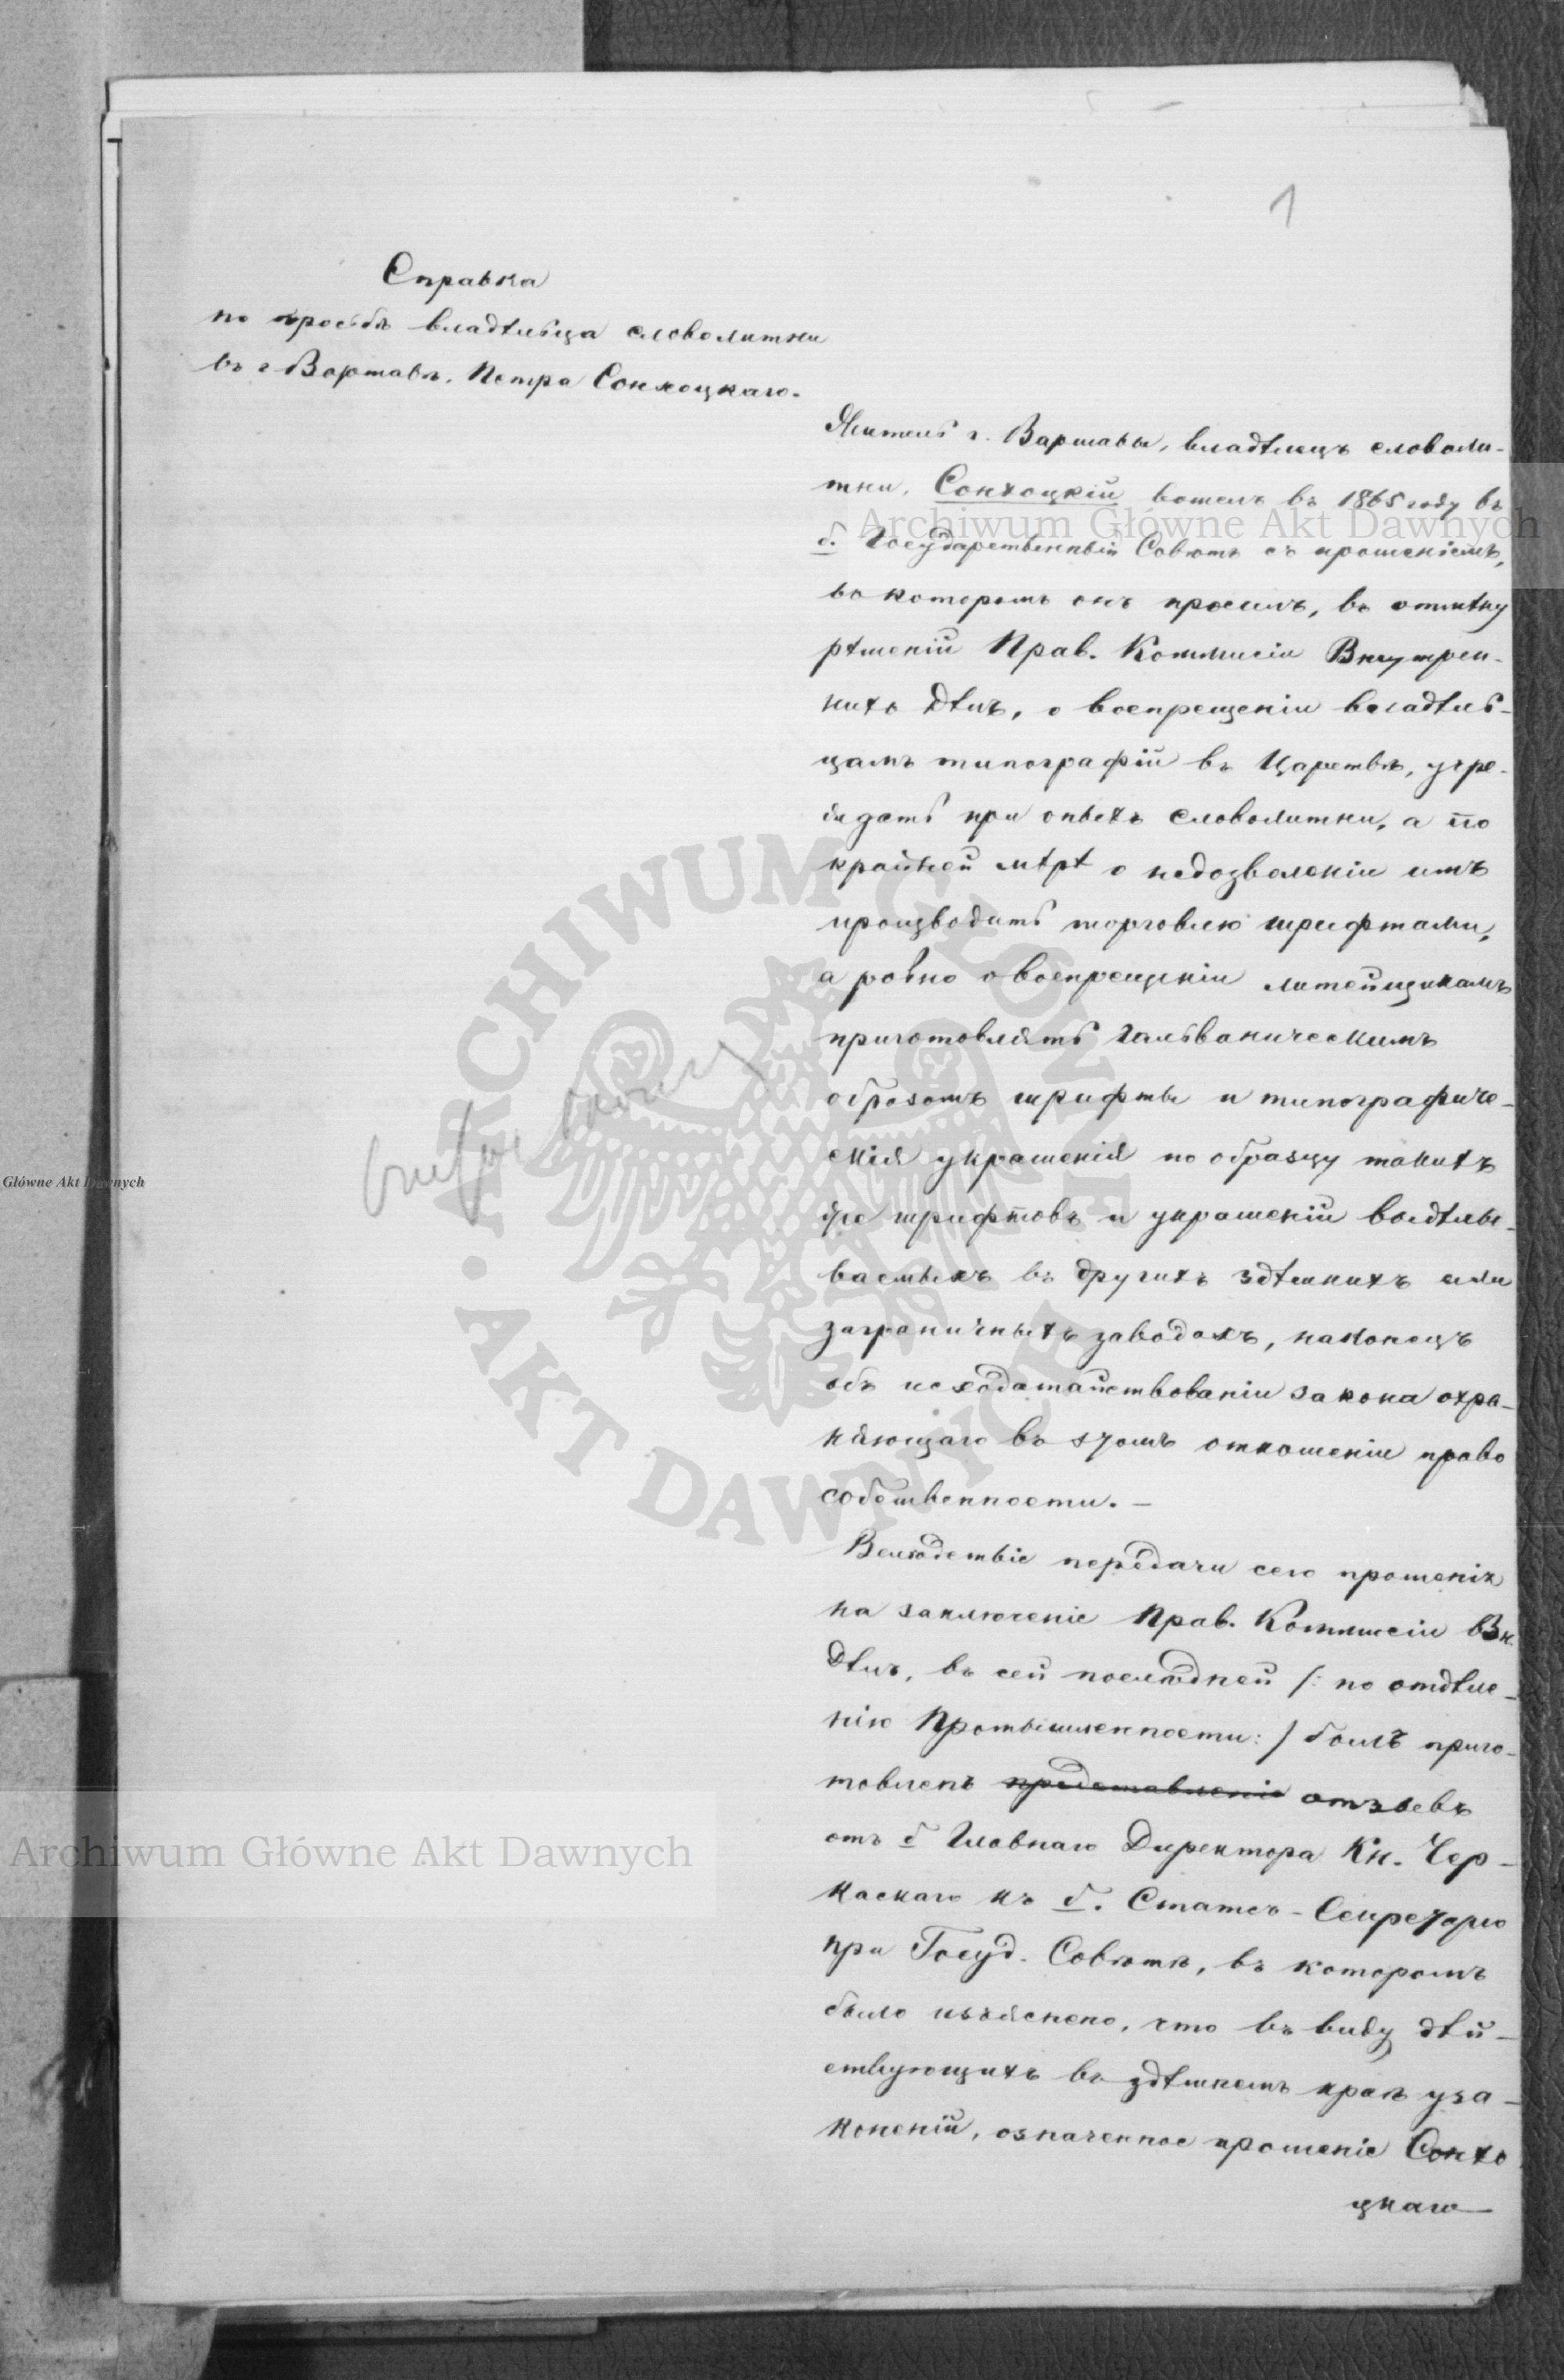 1
Справка
по просьбѣ владѣльца словолитни
въ г Варшавѣ, Петра Сонхоцкаго.
Житель г. Варшавы, владѣлецъ словоли-
тни, Сонхоцкій вошелъ въ 1865 году въ
б. Государственный Совѣтъ съ прошеніемъ,
въ которомъ онъ просилъ, въ отмѣну
рѣшеній Прав. Коммисіи Внутрен-
нихъ Дѣлъ, о воспрещеніи владѣль-
цамъ типографій въ Царствѣ, учре-
ждать при оныхъ словолитни, а по
крайней мѣрѣ о недозволеніи имъ
производить торговлю шрифтами,
а равно о воспрещеніи литейщикамъ
приготовлять гальваническимъ
образомъ шрифты и типографиче-
скія украшенія по образцу такихъ
же шрифтовъ и украшеній выдѣлы-
ваемыхъ въ другихъ здѣшнихъ или
заграничныхъ заводахъ, наконецъ
объ исходатайствованіи закона охра-
няющаго въ этомъ отношеніи право
собственности. —
Вслѣдствіе передачи сего прошенія
на заключеніе Прав. Коммисіи Вн.
Дѣлъ, въ сей послѣдней /: по отдѣле-
нію Промышленности: / былъ приго-
товленъ представленіе отзывъ
отъ б Главнаго Директора Кн. Чер-
каскаго къ б. Статсъ-Секретарю
при Госуд. Совѣтѣ, въ которомъ
было изъяснено, что въ виду дѣй-
ствующихъ въ здѣшнемъ краѣ уза-
коненій, означенное прошеніе Сонхо
цкаго
Archiwum Główne Akt Dawnych
Główne Akt Dawnych
ARCHIWUM GŁÓWNE • AKT DAWNYCH
Archiwum Główne Akt Dawnych